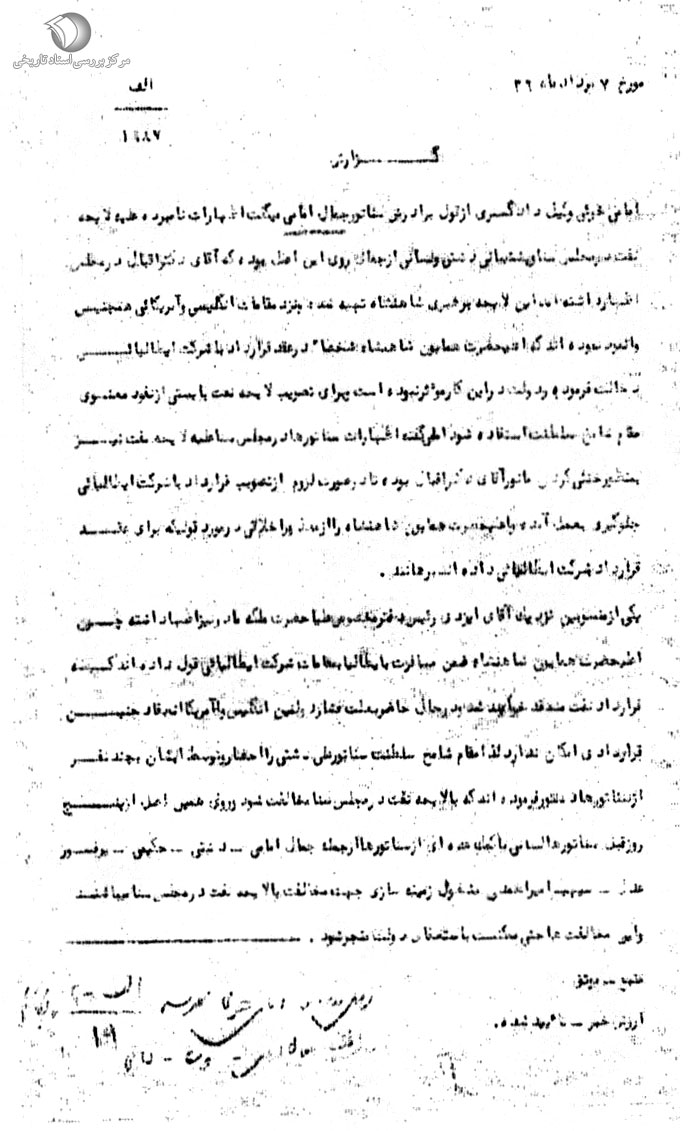 مرکز بررسی اسناد تاریخی
مورخ ۷ مرداد ماه ۳۶
الف
۱۹۸۷
گــــــزارش
امامی خوئی وکیل دادگستری از قول برادرش سناتور جمال امامی میگفت اظهارات نامبرده علیه لایحه
نفت در مجلس سنا و پشتیبانی دشتی ولسانی از جمال روی این اصل بوده که آقای دکتر اقبال در مجلس
اظهار داشته اند این لایحه برهبری شاهنشاه تهیه شده ونزد مقامات انگلیسی وآمریکائی همچنیــن
وانمود نموده اند که اعلیحضرت همایون شاهنشاه شخصاً در عقد قرارداد با شرکت ایطالیائــــی
دخالت فرموده و دولت در این کار مؤثر نبوده است وبرای تصویب لایحه نفت بایستی از نفوذ معنــوی
مقام شامخ سلطنت استفاده شود امامی گفته اظهارات سناتورها در مجلس سنا علیه لایحه نفت نیــــز
بمنظور خنثی کردن مانور آقای دکتر اقبال بوده تا در صورت لزوم از تصویب قرارداد با شرکت ایطالیائی
جلوگیری بعمل آمده واعلیحضرت همایون شاهنشاه را از محذور اخلاقی در مورد قولیکه برای عقــــد
قرارداد بشرکت ایطالیائی داده اند برهانند .
یکی از منسوبین نزدیک آقای ایزدی رئیس دفتر مخصوص علیاحضرت ملکه مادر نیز اظهار داشته چــــون
اعلیحضرت همایون شاهنشاه ضمن مسافرت بایطالیا بمقامات شرکت ایطالیائی قول داده اند کـــــه
قرارداد نفت منعقد خواهد شد ودر حال حاضر بعلت فشار دولتین انگلیس وآمریکا انعقاد چنیــــن
قراردادی امکان ندارد لذا مقام شامخ سلطنت سناتور علی دشتی را احضار وتوسط ایشان بچند نفــر
از سناتورها دستور فرموده اند که با لایحه نفت در مجلس سنا مخالفت شود وروی همین اصل از پنـــج
روز قبل سناتور لسانی با کمک عده ای از سناتورها از جمله جمال امامی – دشتی – حکیمی – پرفسور
عدل – سپهبد امیراحمدی مشغول زمینه سازی جهت مخالفت با لایحه نفت در مجلس سنا میباشنـــد
واین مخالفت ها حتی ممکنست باستعفای دولت منجر شود .
منبع – موثق
ارزش خبر – تائید شده .